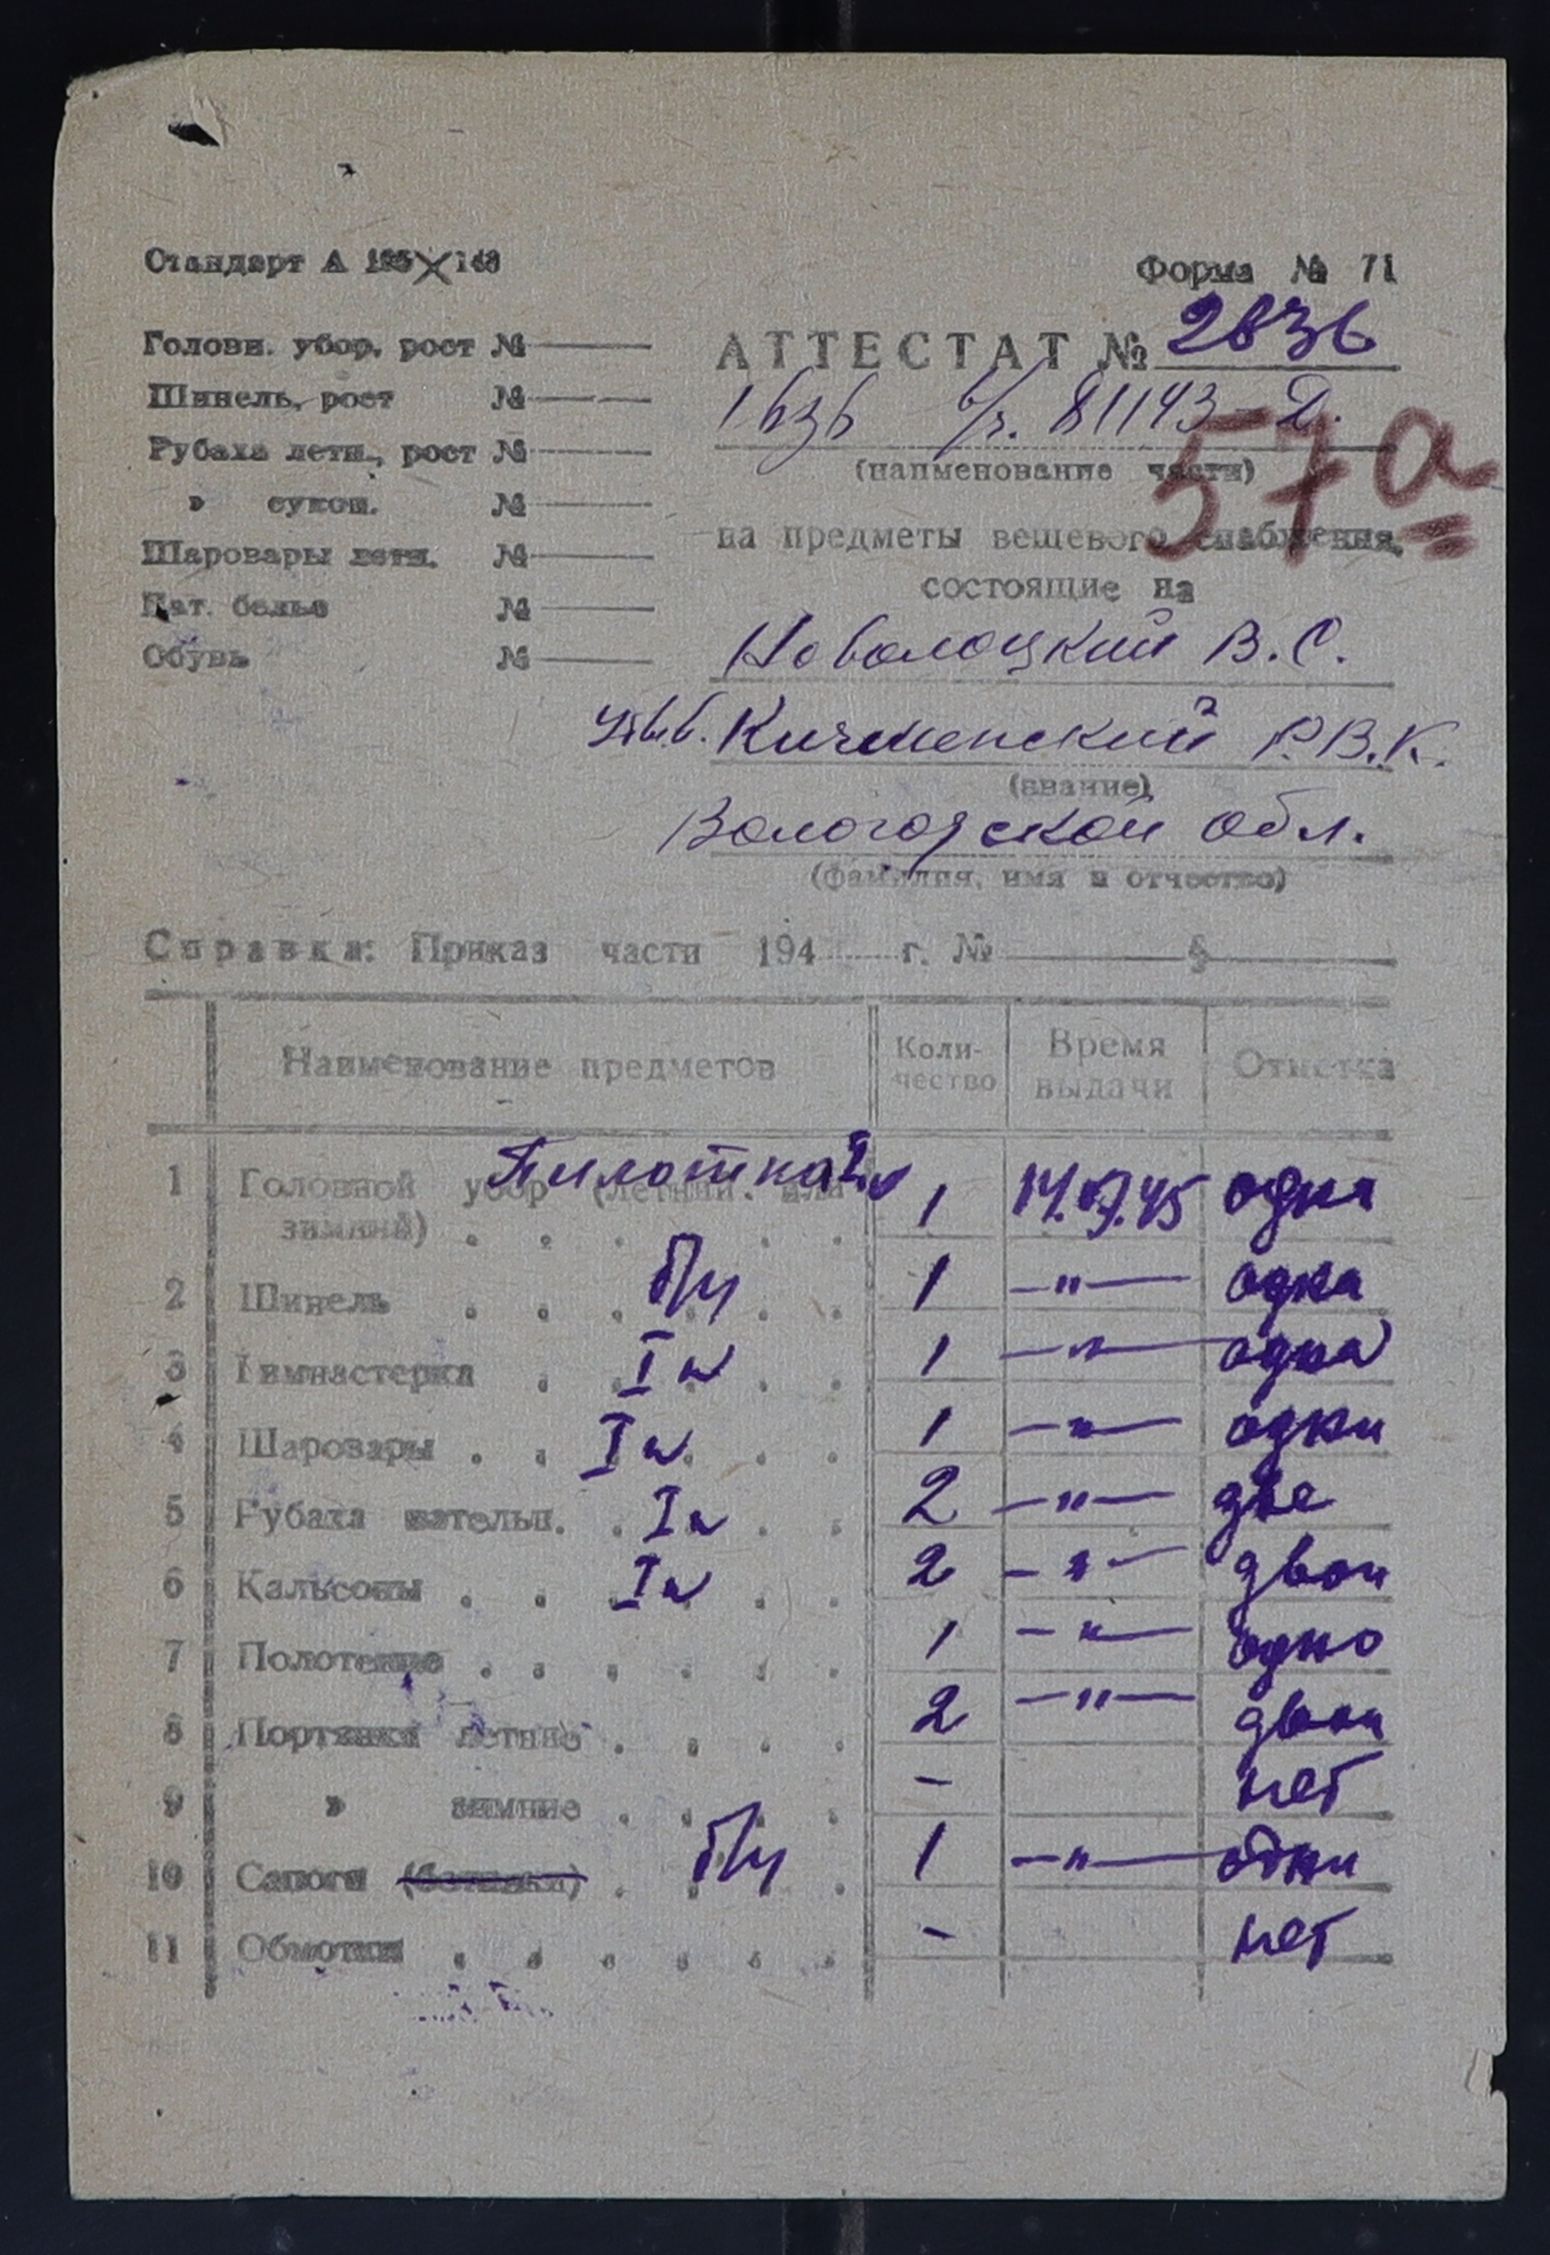 Стандарт А 105×148
Форма № 71
Головн. убор, рост №
Шинель, рост №
Рубаха летн., рост №
» сукон. №
Шаровары летн. №
Нат. белье №
Обувь №
АТТЕСТАТ № 2836
в/ч. 81143-Д.
57а
(наименование части)
на предметы вещевого снабжения,
состоящие на
Новолоцкий В.С.
Кичменский Р.В.К.
(звание)
Вологодской обл.
(фамилия, имя и отчество)
Справка: Приказ части 194 г. № §
Наименование предметов Коли-чество Время выдачи Отметка
1 Головной убор (летний или зимний) Пилотка 1 одна
2 Шинель б/у 1 -"- одна
3 Гимнастерка I н 1 -"- одна
4 Шаровары I н 1 -"- одни
5 Рубаха нательн. I н 2 -"- две
6 Кальсоны I н 2 -"- двои
7 Полотенце 1 -"- одно
8 Портянки летние 2 -"- двои
9 » зимние - нет
10 Сапоги (ботинки) б/у 1 -"- одни
11 Обмотки - нет